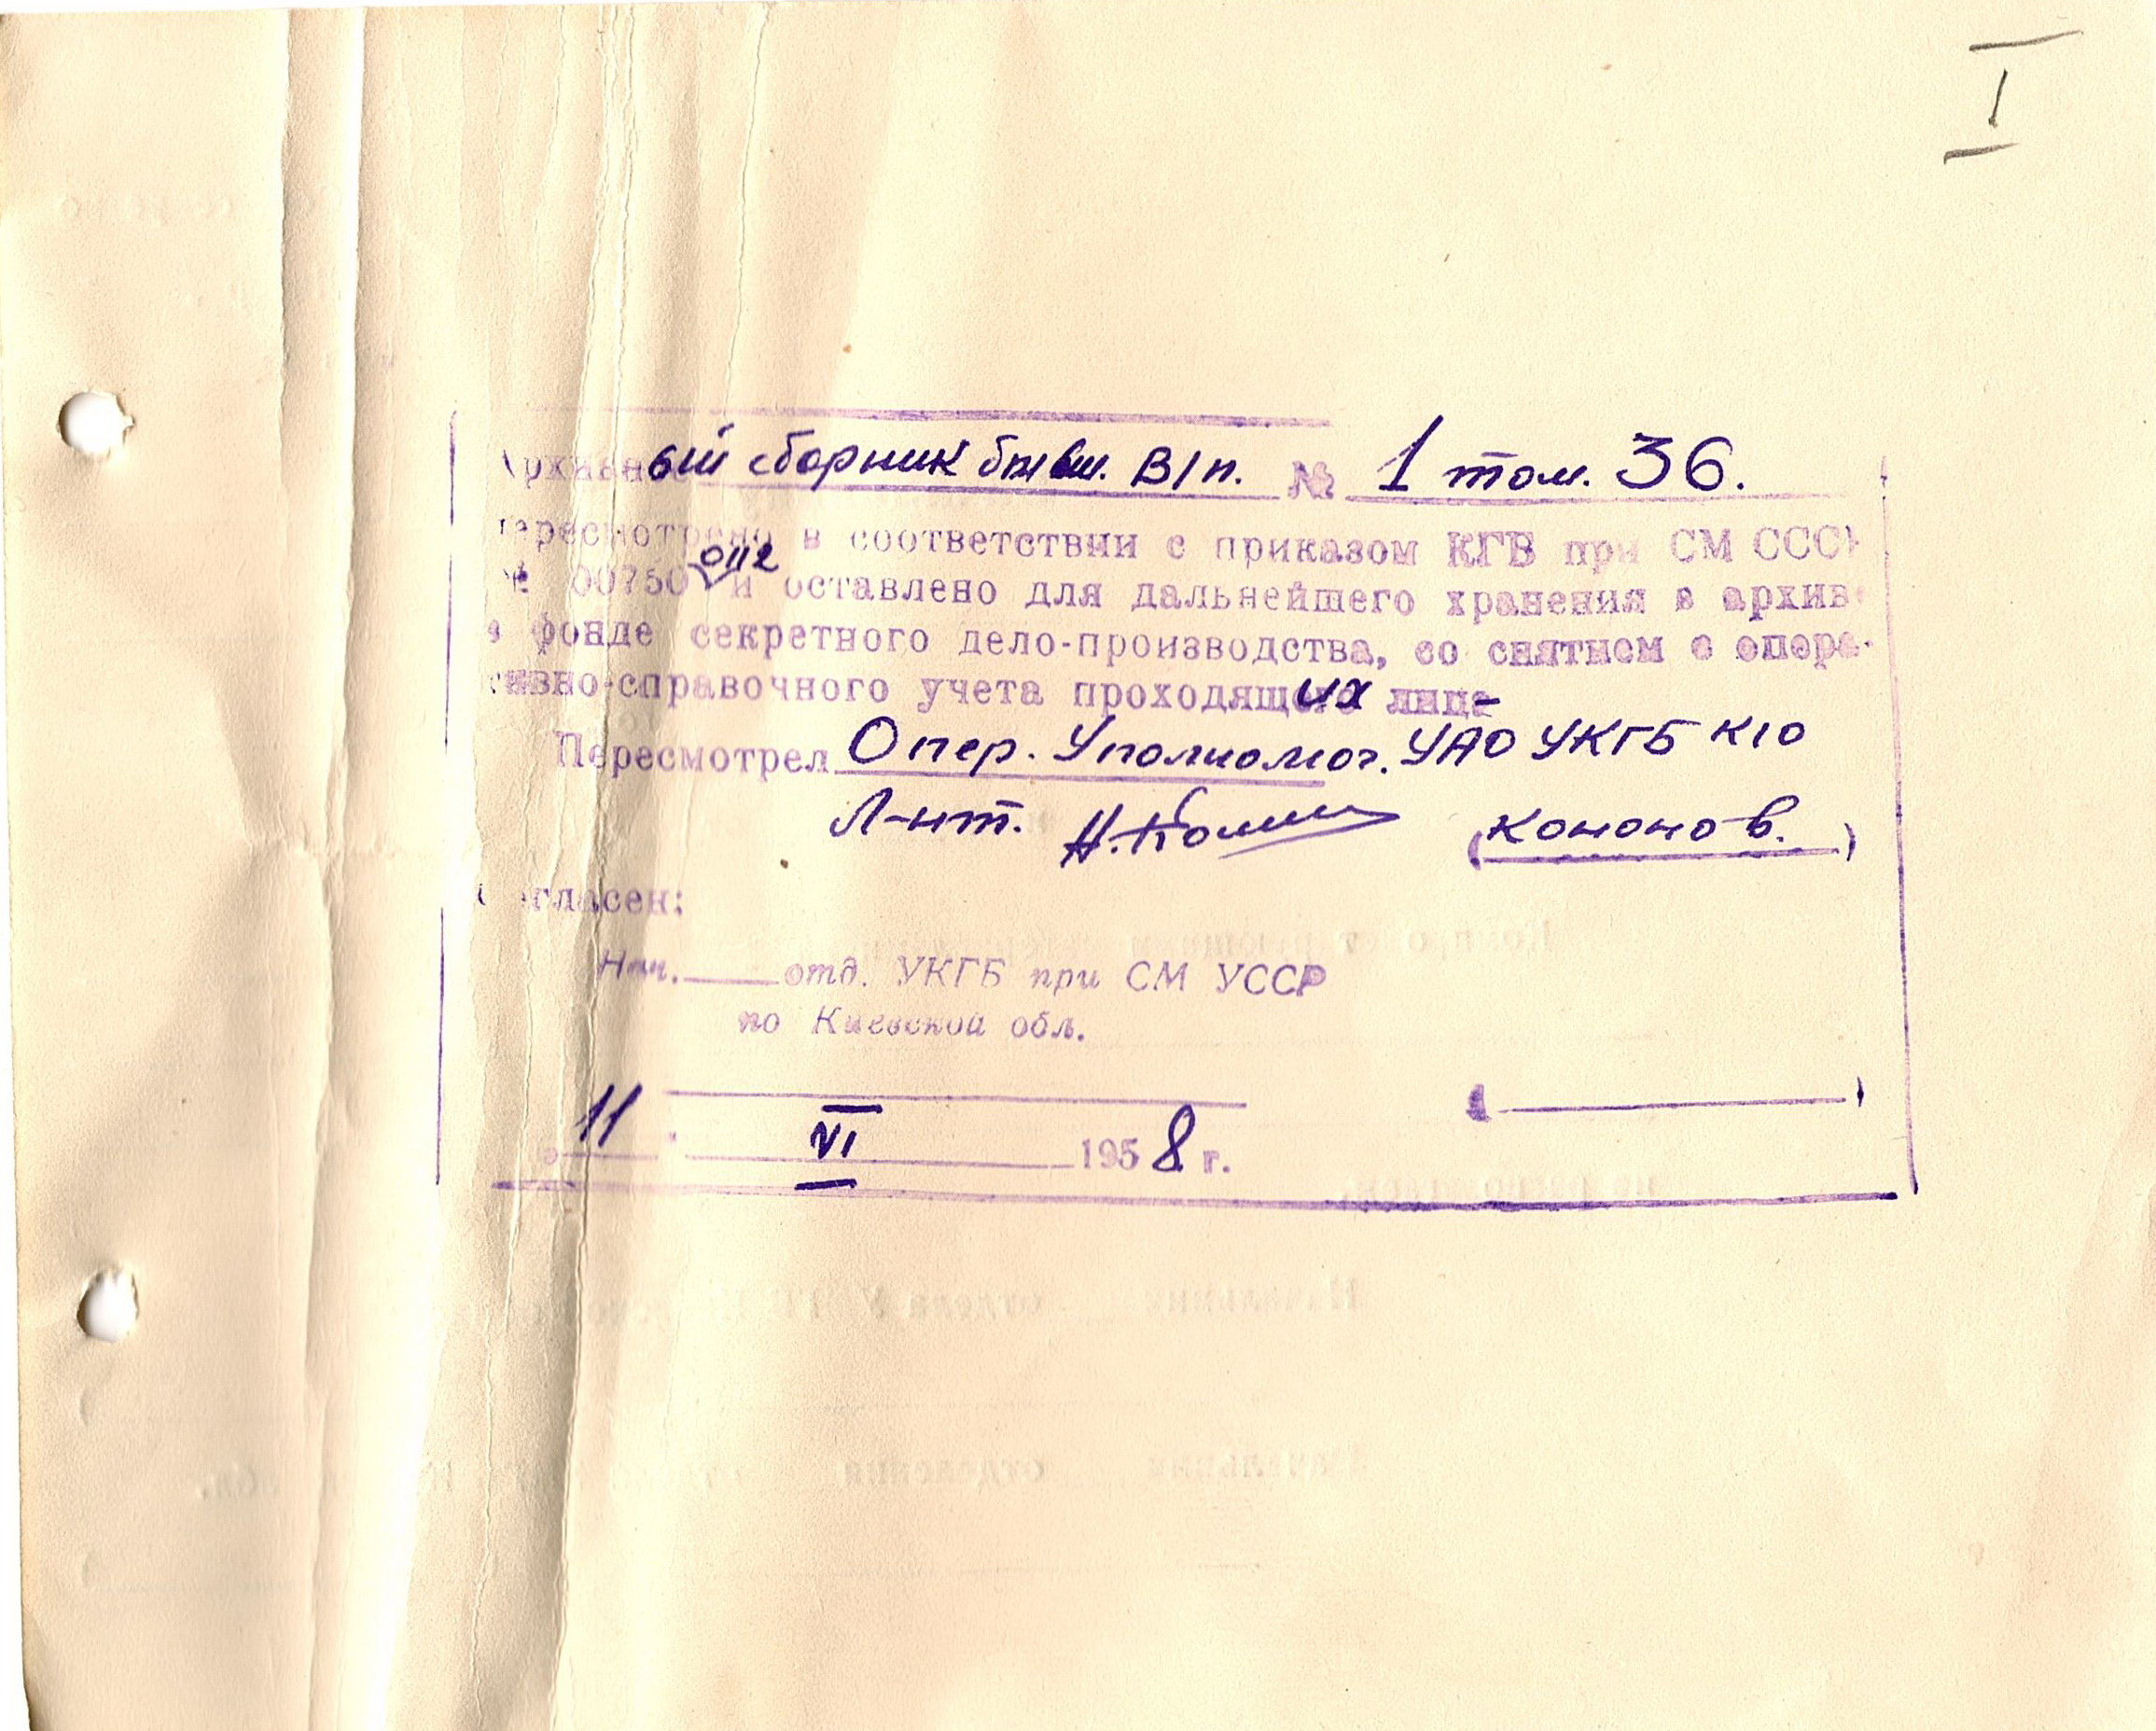 I
Архивный сборник бывш. В/п. № 1 том. 36.
пересмотрено в соответствии с приказом КГБ при СМ СССР
№ 00750 0112 и оставлено для дальнейшего хранения в архиве
в фонде секретного дело-производства, со снятием с опера-
тивно-справочного учета проходящих лиц
Пересмотрел Опер. Уполномог. УАО УКГБ КО
Л-нт. (Кононов.)
Согласен:
Нач. отд. УКГБ при СМ УССР
по Киевской обл.
11 VI 1958 г.